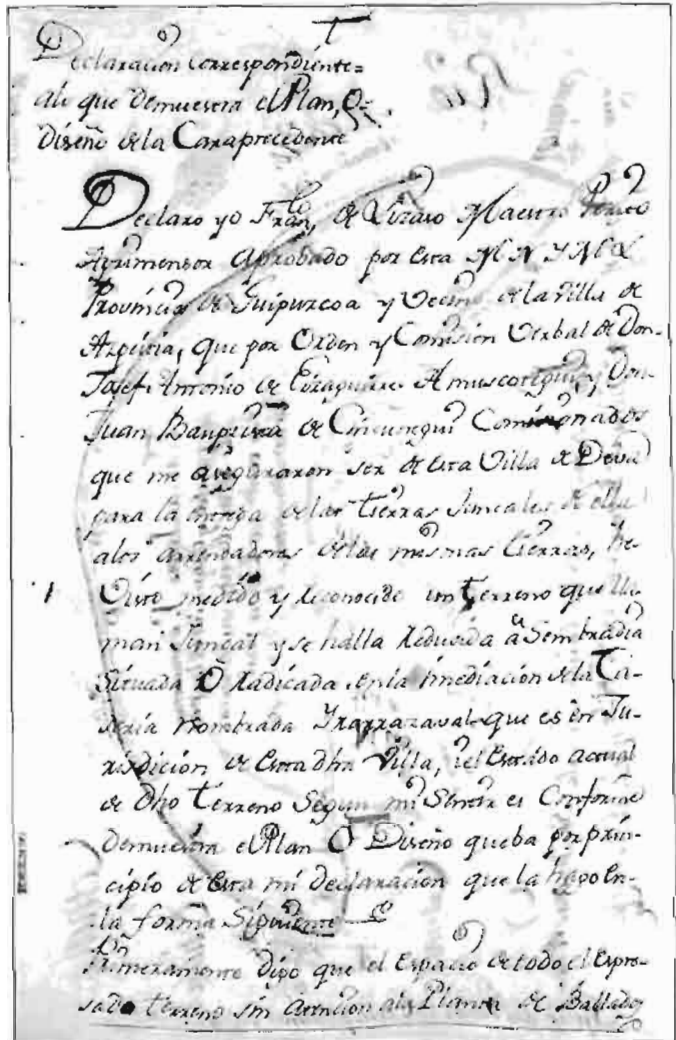 Declaracion correspondiente=
alo que Demuestra el Plan, O
Diseño dela Cara precedente
Declaro yo Fran.co de Lizaso Maestro Perito
Agrimensor Aprobado por esta M N Y M L
Provincia de Guipuzcoa y Vecino dela Villa de
Azpeitia, que por Orden y Comision Verbal de Don
Josef Antonio de Eizaguirre Amuscotegui, y Don
Juan Bauptista de Cincunegui Comisionados
que me aseguraron ser de esta Villa de Deva
para la entrega delas tierras Juncales de ella
alos arrendadores delas mismas tierras, he
Visto medido y Reconocido un terreno que lla-
man Juncal y se halla Reducida â Sembradia
Situada O Radicada en la inmediacion dela Ca-
seria Nombrada Yrarrazaval que es en Ju-
risdicion de esta dha Villa, y el Estado actual
de Dho terreno Segun mi Sentir es Conforme
demuestra el Plan O Diseño que ba por prin-
cipio de esta mi declaracion que la hago en
la forma Siguiente
Primeramente digo que el Espacio de todo el Expre-
sado terreno sin atencion ala Planta de Ballados